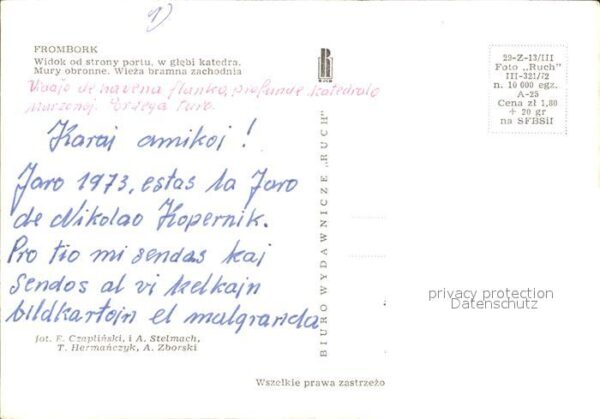 1)
FROMBORK
Widok od strony portu, w głębi katedra.
Mury obronne. Wieża bramna zachodnia
Vidaĵo de havena flanko, profunde katedralo
Karaj amikoj!
Jaro 1973, estas la Jaro
de Nikolao Kopernik.
Pro tio mi sendas kaj
sendos al vi kelkajn
bildkartojn el malgranda
fot. E. Czapliński, i A. Stelmach,
T. Hermańczyk, A. Zborski
Wszelkie prawa zastrzeżo
BIURO WYDAWNICZE „RUCH"
R
29-Z-13/III
Foto „Ruch"
III-321/72
n. 10 000 egz.
A-25
Cena zł 1,80
+ 20 gr
na SFBSiI
privacy protection
Datenschutz